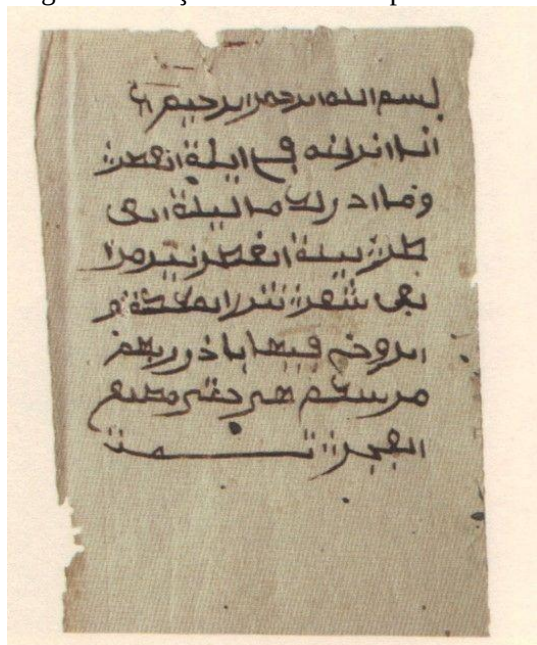 بسم الله الرحمن الرحيم
انا انزلنه في ليلة القدر
وما ادرك ما ليلة الق
در ليلة القدر خير من ا
لف شهر تنزل الملئكة و
الروح فيها باذن ربهم
من سلم هي حتى مطلع
الفجر تمت